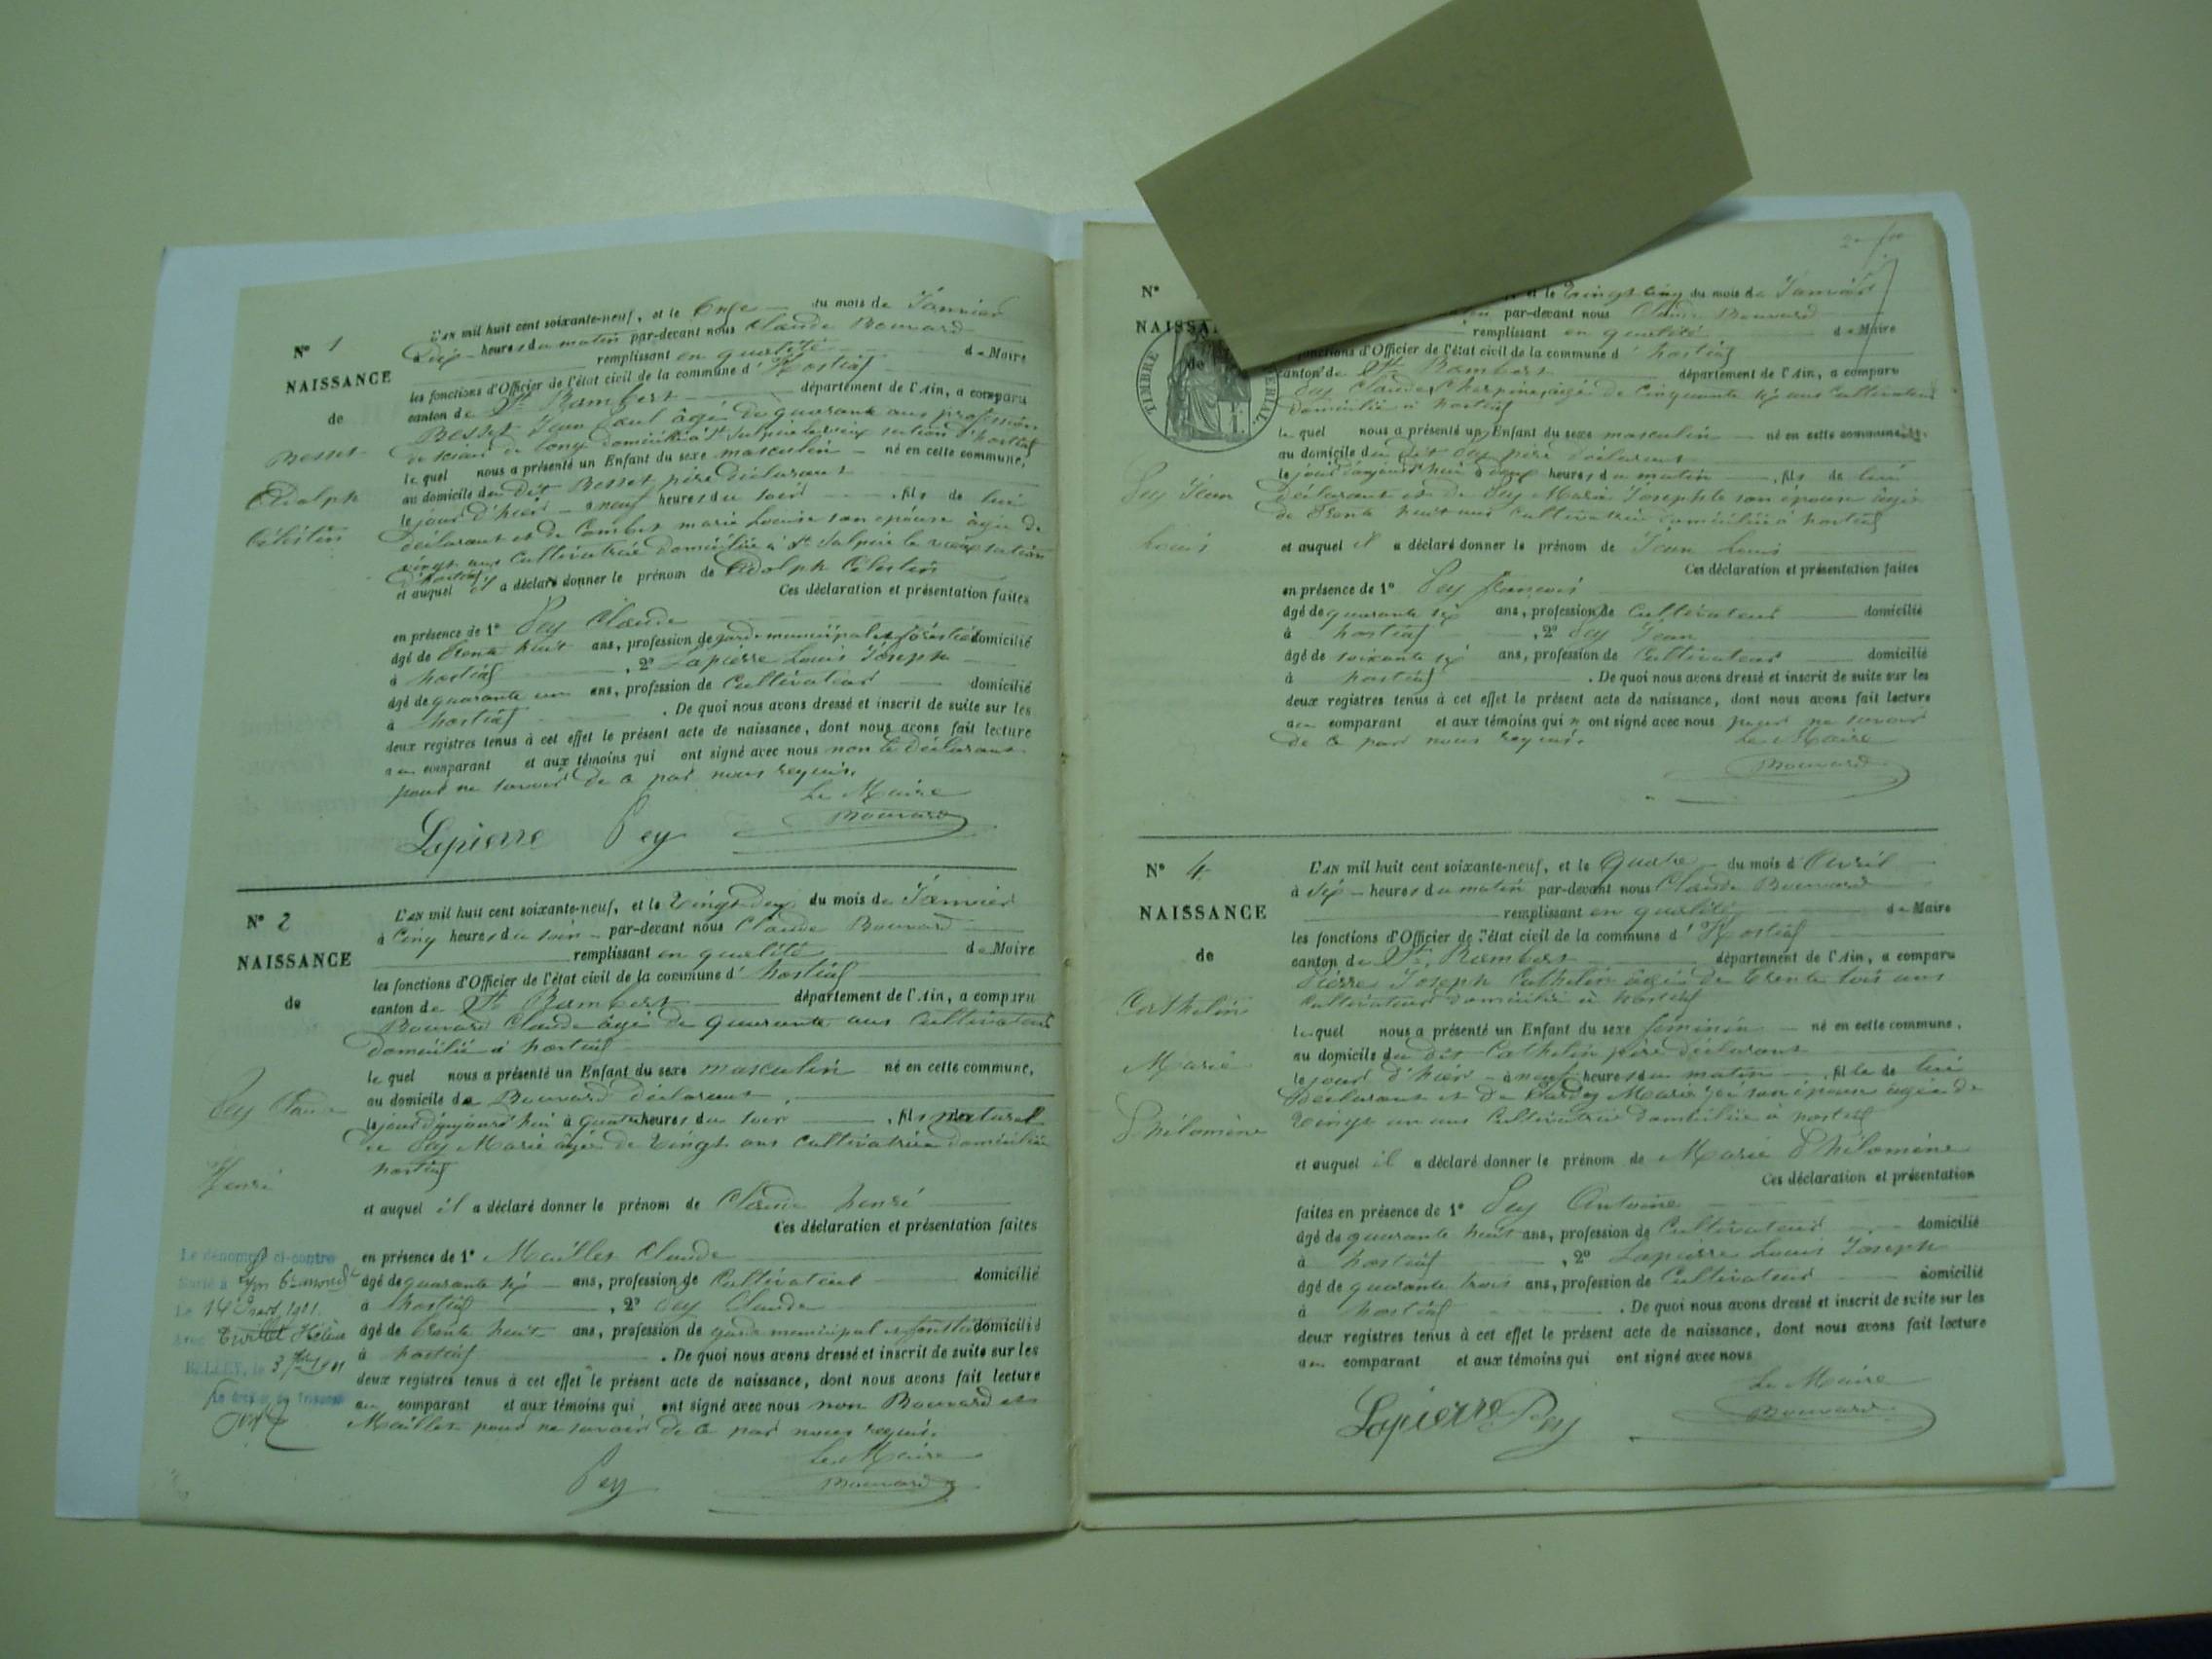 N° 1
NAISSANCE
de
Besset
Adolph
Célestin
L'AN mil huit cent soixante-neuf, et le Onze du mois de Janvier
à Dix heures du matin par-devant nous Claude Bouvard
remplissant en qualité de Maire
les fonctions d'Officier de l'état civil de la commune d'Hostiaz
canton de St Rambert département de l'Ain, a comparu
Besset Jean Paul âgé de quarante ans profession
de scieur de long domicilié à St Sulpice le vieux section d'hostiaz
lequel nous a présenté un Enfant du sexe masculin né en cette commune,
au domicile du Dit Besset père déclarant
le jour d'hier à neuf heures du soir, fils de lui
déclarant et de Combet marie Louise son épouse âgée de
vingt ans cultivatrice domiciliée à St Sulpice le vieux section
d'hostiaz
et auquel il a déclaré donner le prénom de Adolph Célestin
Ces déclaration et présentation faites
en présence de 1° Pey Claude
âgé de trente huit ans, profession de garde municipal et forestier domicilié
à hostiaz, 2° Lapierre Louis Joseph
âgé de quarante un ans, profession de Cultivateur domicilié
à hostiaz. De quoi nous avons dressé et inscrit de suite sur les
deux registres tenus à cet effet le présent acte de naissance, dont nous avons fait lecture
au comparant et aux témoins qui ont signé avec nous non le déclarant
pour ne savoir de ce par nous requis.
Le Maire
Lapierre Pey Bouvard
N° 2
NAISSANCE
de
Pey Claude
Henri
L'AN mil huit cent soixante-neuf, et le Vingt deux du mois de Janvier
à Cinq heures du soir par-devant nous Claude Bouvard
remplissant en qualité de Maire
les fonctions d'Officier de l'état civil de la commune d'hostiaz
canton de St Rambert département de l'Ain, a comparu
Bouvard Claude âgé de quarante ans Cultivateur
domicilié à hostiaz
lequel nous a présenté un Enfant du sexe masculin né en cette commune,
au domicile de Bouvard déclarant,
le jour d'aujourd'hui à quatre heures du soir, fils naturel
de Pey Marie âgée de Vingt ans cultivatrice domiciliée
hostiaz
et auquel il a déclaré donner le prénom de Claude henri
Ces déclaration et présentation faites
en présence de 1° Maillet Claude
âgé de quarante six ans, profession de Cultivateur domicilié
à hostiaz, 2° Pey Claude
âgé de trente huit ans, profession de garde municipal et forestier domicilié
à hostiaz. De quoi nous avons dressé et inscrit de suite sur les
deux registres tenus à cet effet le présent acte de naissance, dont nous avons fait lecture
au comparant et aux témoins qui ont signé avec nous non Bouvard et
Maillet pour ne savoir de ce par nous requis.
Le Maire
Pey Bouvard
Le dénommé ci-contre
Marié à Lyon
Le 14 1901
avec Hélène
BELLEY, le 3 1901
N°
NAISSANCE
de
TIMBRE IMPERIAL
Pey Jean
Louis
et le Vingt Cinq du mois de Janvier
par-devant nous Claude Bouvard
remplissant en qualité de Maire
fonctions d'Officier de l'état civil de la commune d'hostiaz
canton de St Rambert département de l'Ain, a comparu
Pey Claude âgé de Cinquante six ans Cultivateur
domicilié à hostiaz
lequel nous a présenté un Enfant du sexe masculin né en cette commune,
au domicile du Dit Pey père déclarant
le jour d'aujourd'hui à deux heures du matin, fils de lui
déclarant et de Pey Marie Josephte son épouse âgée
de Trente huit ans cultivatrice domiciliée à hostiaz
et auquel il a déclaré donner le prénom de Jean Louis
Ces déclaration et présentation faites
en présence de 1° Pey françois
âgé de quarante six ans, profession de Cultivateur domicilié
à hostiaz, 2° Pey Jean
âgé de soixante six ans, profession de Cultivateur domicilié
à hostiaz. De quoi nous avons dressé et inscrit de suite sur les
deux registres tenus à cet effet le présent acte de naissance, dont nous avons fait lecture
au comparant et aux témoins qui n'ont signé avec nous pour ne savoir
de ce par nous requis.
Le Maire
Bouvard
N° 4
NAISSANCE
de
Cathelin
Marie
Philomène
L'AN mil huit cent soixante-neuf, et le Quatre du mois d'Avril
à dix heures du matin par-devant nous Claude Bouvard
remplissant en qualité de Maire
les fonctions d'Officier de l'état civil de la commune d'Hostiaz
canton de St Rambert département de l'Ain, a comparu
Pierre Joseph Cathelin âgé de Trente trois ans
Cultivateur domicilié à hostiaz
lequel nous a présenté un Enfant du sexe féminin né en cette commune,
au domicile du dit Cathelin père déclarant
le jour d'hier à neuf heures du matin, fille de lui
déclarant et de Marie son épouse âgée de
Vingt un ans Cultivatrice domiciliée à hostiaz
et auquel il a déclaré donner le prénom de Marie Philomène
Ces déclaration et présentation
faites en présence de 1° Pey Antoine
âgé de quarante huit ans, profession de Cultivateur domicilié
à hostiaz, 2° Lapierre Louis Joseph
âgé de quarante trois ans, profession de Cultivateur domicilié
à hostiaz. De quoi nous avons dressé et inscrit de suite sur les
deux registres tenus à cet effet le présent acte de naissance, dont nous avons fait lecture
au comparant et aux témoins qui ont signé avec nous
Le Maire
Lapierre Pey Bouvard